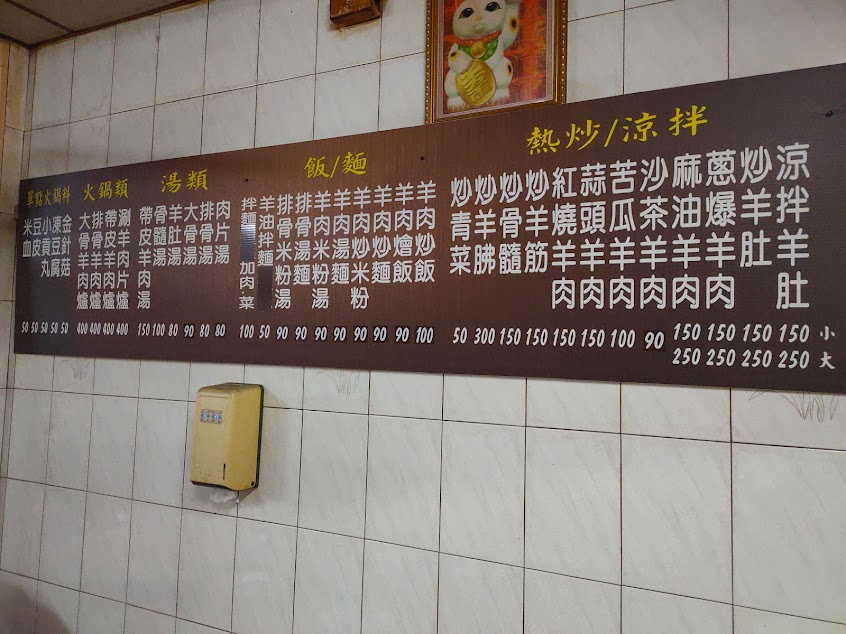 熱炒/涼拌
小
大
涼拌羊肚 150 250
炒羊肚 150 250
蔥爆羊肉 150 250
麻油羊肉 150 250
沙茶羊肉 90
苦瓜羊肉 100
蒜頭羊肉 150
紅燒羊肉 150
炒羊筋 150
炒骨髓 150
炒羊胇 300
炒青菜 50
飯/麵
羊肉炒飯 100
羊肉燴飯 90
羊肉炒麵 90
羊肉炒米粉 90
羊肉湯麵 90
羊肉米粉湯 90
排骨湯麵 90
排骨米粉湯 90
羊油拌麵 50
拌麵加肉菜 100
湯類
肉片湯 80
排骨湯 80
大骨湯 90
羊肚湯 80
骨髓湯 100
帶皮羊肉湯 150
火鍋類
涮羊肉片爐 400
帶皮羊肉爐 400
排骨羊肉爐 400
大骨羊肉爐 400
單點火鍋料
金針菇 50
凍豆腐 50
小貢丸 50
豆皮 50
米血 50